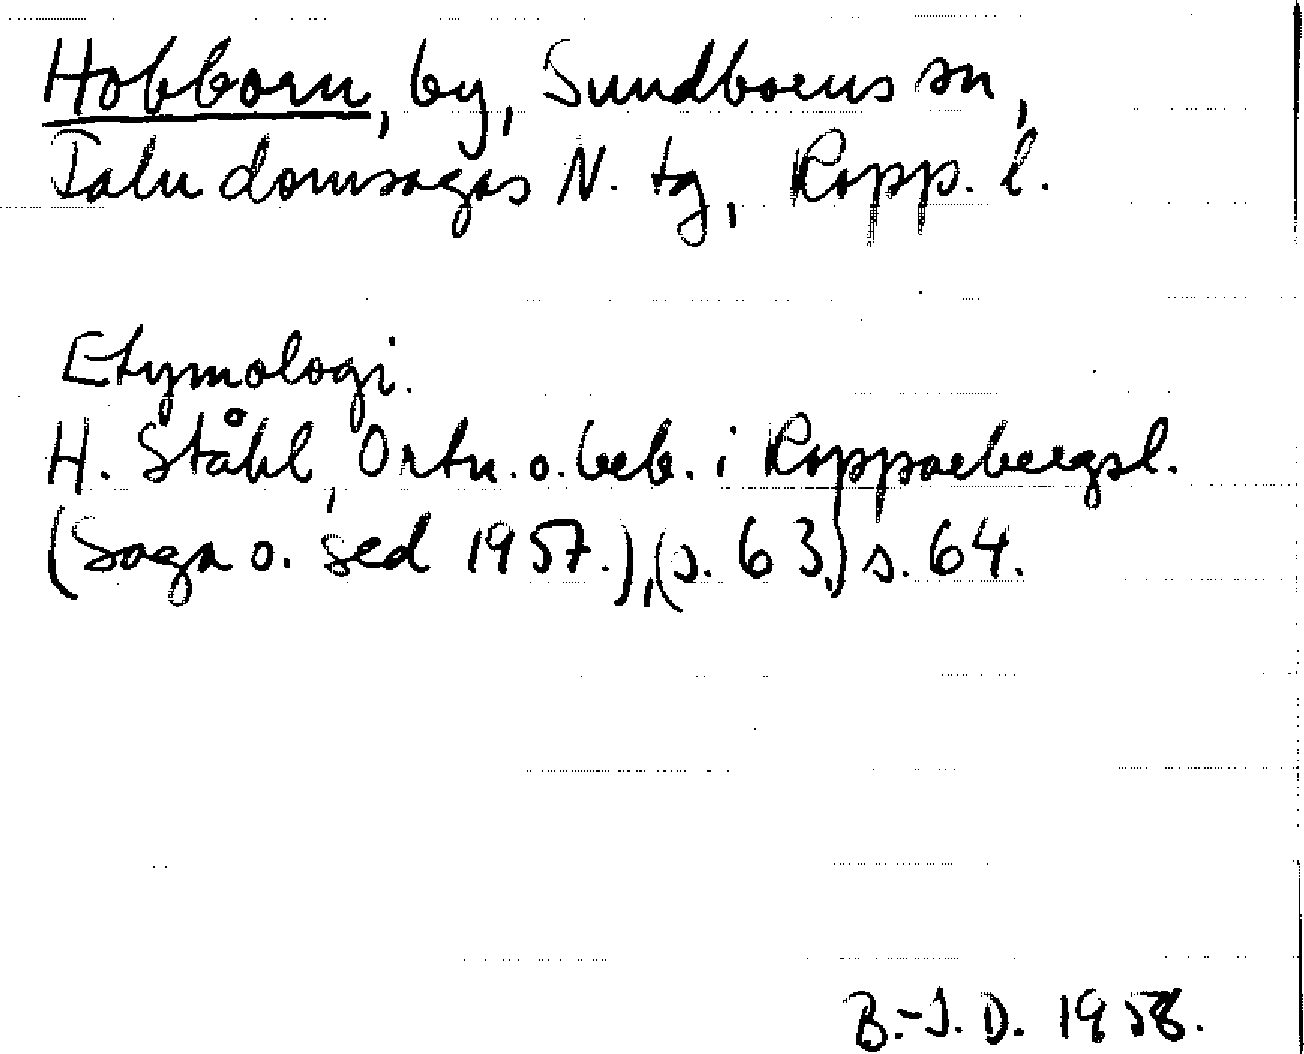 Hobborn, by, Sundborns sn,
Falu domsagas N. tg, Kopp. l.
Etymologi.
H. Ståhl, Ortn. o. beb. i Kopparbergsl.
(Saga o. sed 1957.), (s. 63,) s. 64.
B.-J. D. 1958.